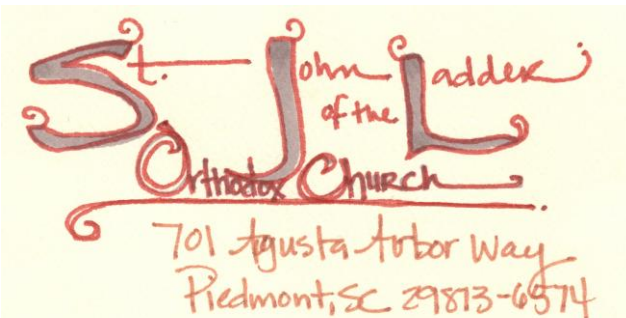 St. John Ladder
of the
Orthodox Church
701 Agusta Arbor Way
Piedmont, SC 29813-6574